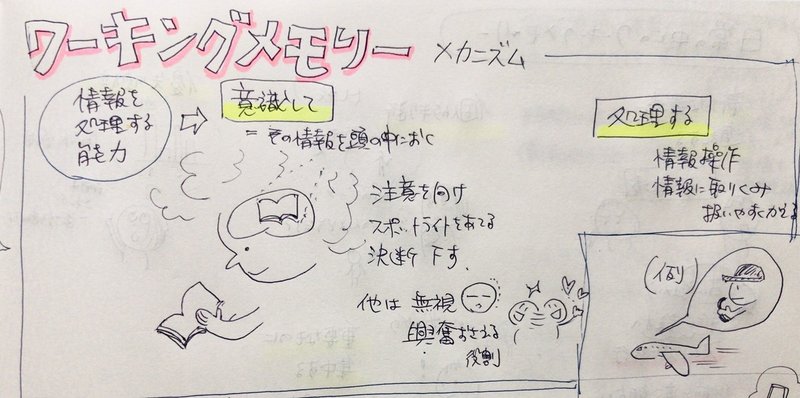 ワーキングメモリー メカニズム
情報を
処理する
能力
⇨
意識して
= その情報を頭の中におく
注意を向け
スポットライトをあてる
決断下す.
他は 無視
興奮おさえる
役割
処理する
情報操作
情報に取りくみ
扱いやすくかえる
(例)